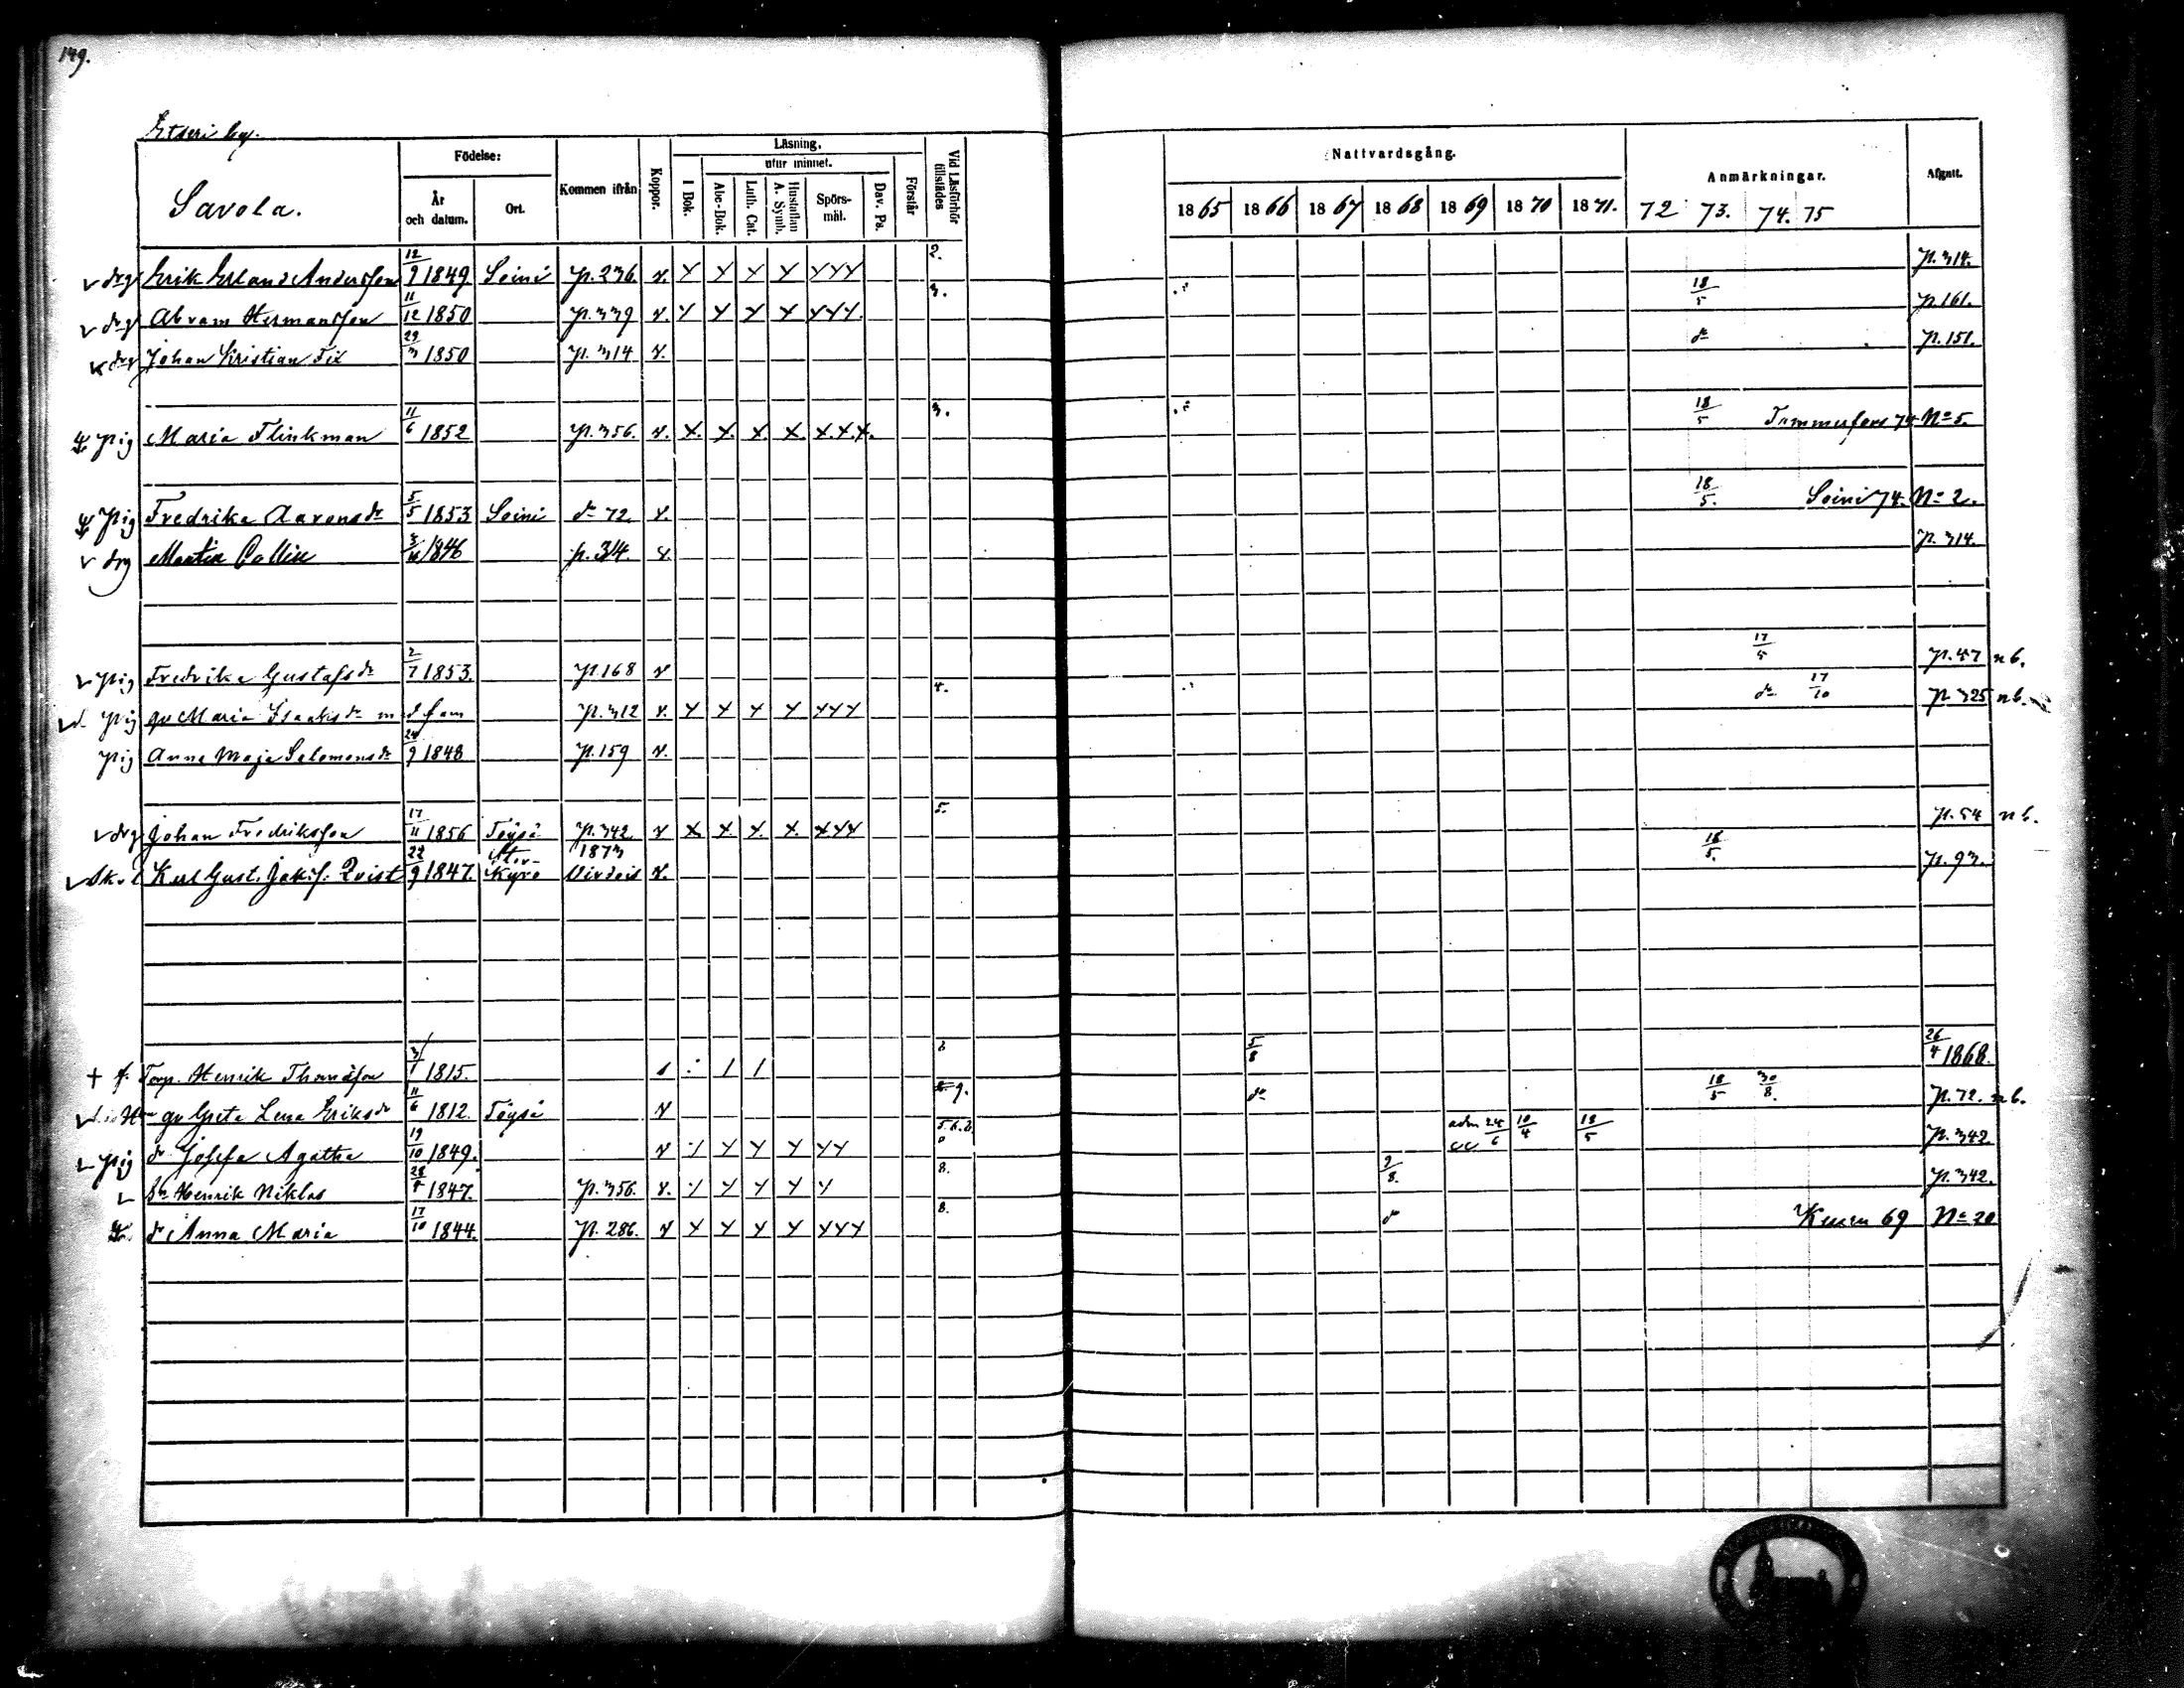 149.
Etseri by.
Savola.
Födelse:
År och datum.
Ort.
Kommen ifrån
Koppor.
Läsning.
utur minnet.
I Bok.
Abc-Bok.
Luth. Cat.
Hustaflan A. Symb.
Spörsmål.
Dav. Ps.
Förstår
Vid Läsförhör tillstädes
Nattvardsgång.
1865 1866 1867 1868 1869 1870 1871. 72 73. 74. 75
Anmärkningar.
Afgått.
drg Erik Erland Andersson 12/9 1849. Soini p. 236. v. 2. p. 314.
drg Abram Hermansson 11/12 1850 p. 339 v. 3. 18/5 p. 161.
drg Johan Kristian 29/3 1850 p. 314 v. do p. 151.
pig Maria Flinkman 11/6 1852 p. 356. v. 3. 18/5 Tammerfors 74 No 5.
pig Fredrika Aaronsdr 5/5 1853 Soini do 72. v. 18/5. Soini 74. No 2.
drg Collin 1846 p. 314. v. p. 314.
pig Fredrika Gustafsdr 2/7 1853 p. 168 v 17/5 p. 57 nb.
pig gv Maria Isaaksdr med fam p. 312 v. 4. do 17/10 p. 325 nb.
pig Anna Maja Salomonsdr 24/9 1848 p. 159 v.
drg Johan Fredriksson 17/11 1856 Töysä p. 342 v 5. p. 54 nb.
Karl Gust. Jak:s. Qvist 22/9 1847. Stor-Kyro 1873 Virdois v. 18/5. p. 93.
† f. Torp. Henrik Thomasson 3/1 1815. 5/8 26/4 1868.
gv Greta Lena Eriksdr 11/6 1812. Töysä v 9. do 18/5 30/8. p. 72. nb.
pig dr Josefa Agatha 19/10 1849. v adm 24/6 10/4 18/5 p. 342
Sn Henrik Niklas 28/8 1847. p. 356. v. 8. 9/8. p. 342.
dr Anna Maria 17/10 1844. p. 286. v 8. do Keuru 69 No 20